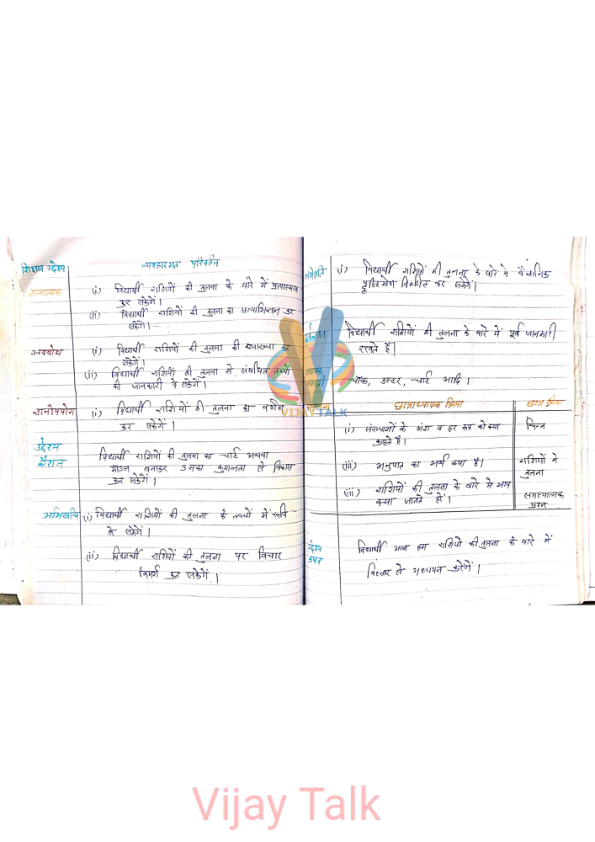 शिक्षण उद्देश्य व्यवहारगत परिवर्तन
ज्ञानात्मक (i) विद्यार्थी राशियों की तुलना के बारे में प्रत्यास्मरण
कर सकेंगे।
(ii) विद्यार्थी राशियों की तुलना का प्रत्याभिज्ञान कर
सकेंगे।
अवबोध (i) विद्यार्थी राशियों की तुलना की व्याख्या कर
सकेंगे।
(ii) विद्यार्थी राशियों की तुलना से संबंधित तथ्यों
की जानकारी दे सकेंगे।
ज्ञानोपयोग (i) विद्यार्थी राशियों की तुलना का वर्णन
कर सकेंगे।
कौशल विद्यार्थी राशियों की तुलना का चार्ट अथवा
मॉडल बनाकर उनका कुशलता से विकास
कर सकेंगे।
अभिरुचि (i) विद्यार्थी राशियों की तुलना के तथ्यों में रुचि
ले सकेंगे।
(ii) विद्यार्थी राशियों की तुलना पर विचार
विमर्श कर सकेंगे।
(i) विद्यार्थी राशियों की तुलना के बारे में वैज्ञानिक
दृष्टिकोण विकसित कर सकेंगे।
विद्यार्थी राशियों की तुलना के बारे में पूर्व जानकारी
रखते हैं।
चॉक, डस्टर, चार्ट आदि।
छात्राध्यापक क्रिया छात्र क्रिया
(i) संख्याओं के अंश व हर रूप को क्या भिन्न
कहते है।
(ii) अनुपात का अर्थ क्या है। राशियों में
तुलना
(iii) राशियों की तुलना के बारे में आप
क्या जानते हो। समस्यात्मक
प्रश्न
उद्देश्य
कथन विद्यार्थी आज हम राशियों की तुलना के बारे में
विस्तार से अध्ययन करेंगे।
VIJAY TALK
Vijay Talk